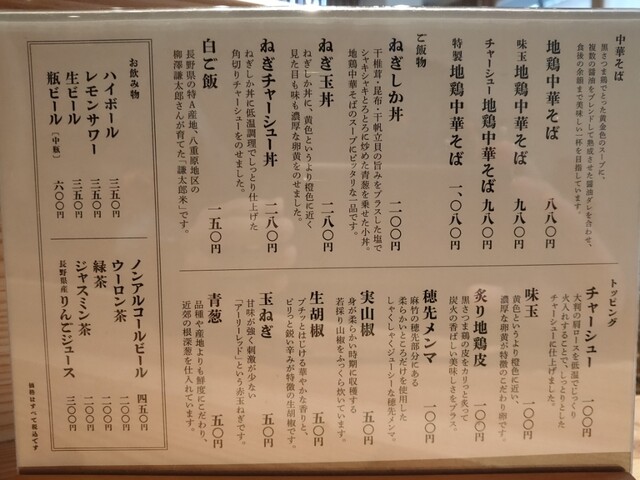 中華そば
黒さつま鶏でとった黄金色のスープに、
複数の醤油をブレンドして熟成させた醤油ダレを合わせ、
食後の余韻まで美味しい一杯を目指しています。
地鶏中華そば 八八〇円
味玉 地鶏中華そば 九八〇円
チャーシュー 地鶏中華そば 九八〇円
特製 地鶏中華そば 一、〇八〇円
ご飯物
ねぎしか丼 二〇〇円
干椎茸・昆布・干帆立貝の旨みをプラスした塩で
シャキシャキとろとろに炒めた青葱を乗せた小丼。
地鶏中華そばのスープにピッタリな一品です。
ねぎ玉丼 二八〇円
ねぎしか丼に、黄色というより橙色に近く
見た目も味も濃厚な卵黄をのせました。
ねぎチャーシュー丼 二八〇円
ねぎしか丼に低温調理でしっとり仕上げた
角切りチャーシューをのせました。
白ご飯 一五〇円
長野県の特A産地、八重原地区の
柳澤謙太郎さんが育てた「謙太郎米」です。
トッピング
チャーシュー 一〇〇円
大判の肩ロースを低温でじっくり
火入れすることで、しっとりとした
チャーシューに仕上げました。
味玉 一〇〇円
黄色というより橙色に近い、
濃厚な卵黄が特徴のこだわり卵です。
炙り地鶏皮 一〇〇円
黒さつま鶏の皮をカリっと炙って
炭火の香ばしい美味しさをプラス。
穂先メンマ 一〇〇円
麻竹の穂先部分にある
柔らかいところだけを使用した
しゃくしゃくジューシーな穂先メンマ。
実山椒 五〇円
身が柔らかい時期に収穫する
若採り山椒をふっくら炊いています。
生胡椒 五〇円
プチッとはじける華やかな香りと、
ピリっと鋭い辛みが特徴の生胡椒です。
玉ねぎ 五〇円
甘味が強く刺激が少ない
「アーリーレッド」という赤玉ねぎです。
青葱 五〇円
品種や産地よりも鮮度にこだわり、
近郊の根深葱を仕入れています。
お飲み物
ハイボール 三五〇円
レモンサワー 三五〇円
生ビール 三五〇円
瓶ビール［中瓶］ 六〇〇円
ノンアルコールビール 四五〇円
ウーロン茶 二〇〇円
緑茶 二〇〇円
ジャスミン茶 二〇〇円
長野県産りんごジュース 三〇〇円
価格はすべて税込です